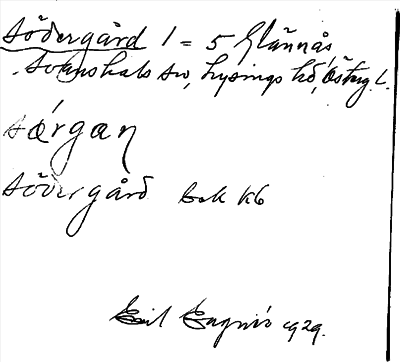 Södergård 1 = 5 Glännås
Svanshals sn, Lysings hd, Östug. L.
særgaɳ
Södergård bok kb
Emil 1929.